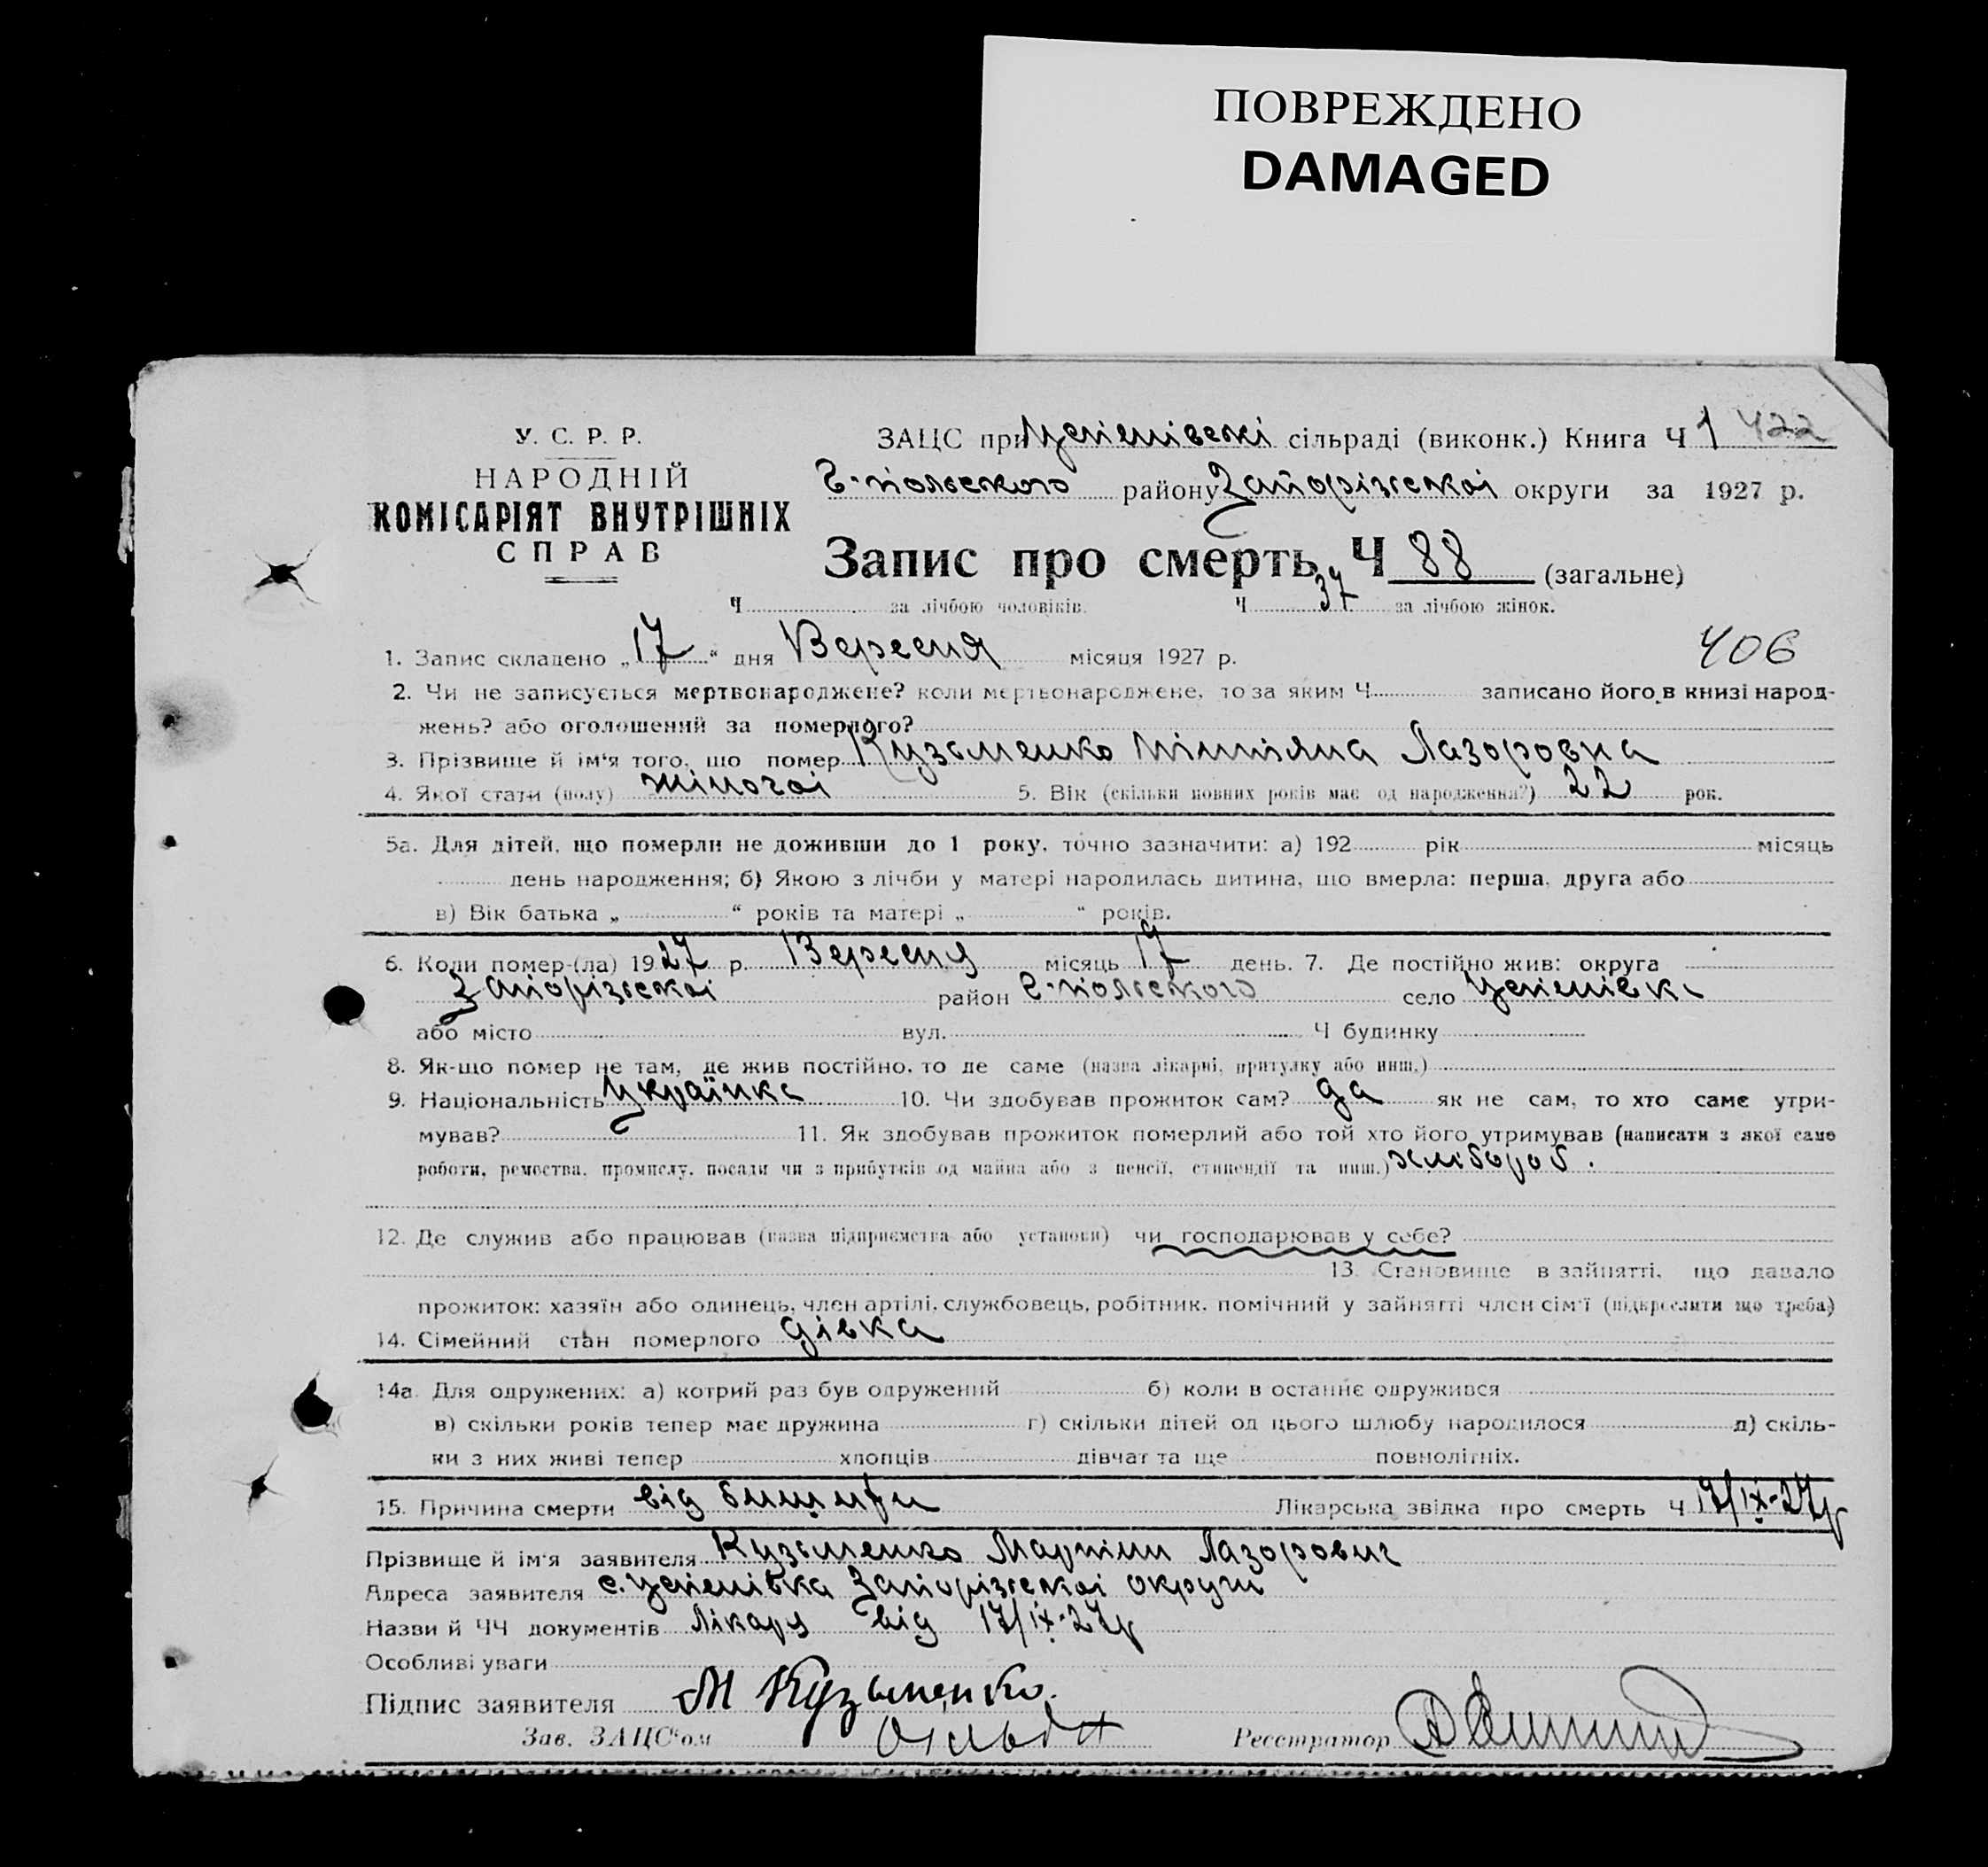 ПОВРЕЖДЕНО
DAMAGED
У. С. Р. Р.
НАРОДНІЙ
КОМІСАРІЯТ ВНУТРІШНІХ
СПРАВ
ЗАЦС при Успенівскі сільраді (виконк.) Книга Ч 1 422
Г-польского району Запорізскоі округи за 1927 р.
Запис про смерть Ч 88 (загальне)
Ч за лічбою чоловіків. Ч 37 за лічбою жінок.
1. Запис складено „17“ дня Вересня місяця 1927 р. 406
2. Чи не записується мертвонароджене? коли мертвонароджене, то за яким Ч записано його в книзі народ-
жень? або оголошений за померлого?
3. Прізвище й ім'я того, що помер Кузьменко Тіттяна Лазоровна
4. Якої стати (полу) жіночоі 5. Вік (скільки повних років має од народження?) 22 рок.
5а. Для дітей, що померли не доживши до 1 року, точно зазначити: а) 192 рік місяць
день народження; б) Якою з лічби у матері народилась дитина, що вмерла: перша, друга або
в) Вік батька „ “ років та матері „ “ років.
6. Коли помер-(ла) 1927 р. Вересня місяць 17 день. 7. Де постійно жив: округа
Запорізскоі район Г-польского село Успенівка
або місто вул. Ч будинку
8. Як-що помер не там, де жив постійно, то де саме (назва лікарні, притулку або инш.)
9. Національність Українка 10. Чи здобував прожиток сам? да як не сам, то хто саме утри-
мував? 11. Як здобував прожиток померлий або той хто його утримував (написати з якої саме
роботи, ремества, промислу, посади чи з прибутків од майна або з пенсії, стипендії та инш.) хлібороб.
12. Де служив або працював (назва підприємства або установи) чи господарював у себе?
13. Становище в зайнятті, що давало
прожиток: хазяїн або одинець, член артілі, службовець, робітник, помічний у зайнятті член сім'ї (підкреслити що треба)
14. Сімейний стан померлого дівка
14а. Для одружених: а) котрий раз був одружений б) коли в останнє одружився
в) скільки років тепер має дружина г) скільки дітей од цього шлюбу народилося д) скіль-
ки з них живі тепер хлопців дівчат та ще повнолітніх.
15. Причина смерти від Лікарська звідка про смерть Ч 17/IX-27р
Прізвище й ім'я заявителя Кузьменко Мартин Лазорович
Адреса заявителя с. Успенівка Запорізскоі округи
Назви й ЧЧ документів Лікаря від 17/IX-27р
Особливі уваги
Підпис заявителя М Кузьменко.
Зав. ЗАЦС'ом Реєстратор